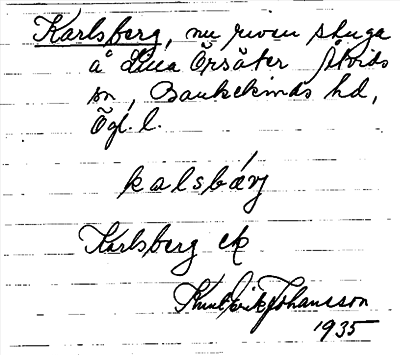 Karlsberg, nu riven stuga
å Lilla Örsäter Åtvids
sn, Bankekinds hd,
Ögl. l.
kalsbærj
Karlsberg ek
Knut Erik Johansson
1935